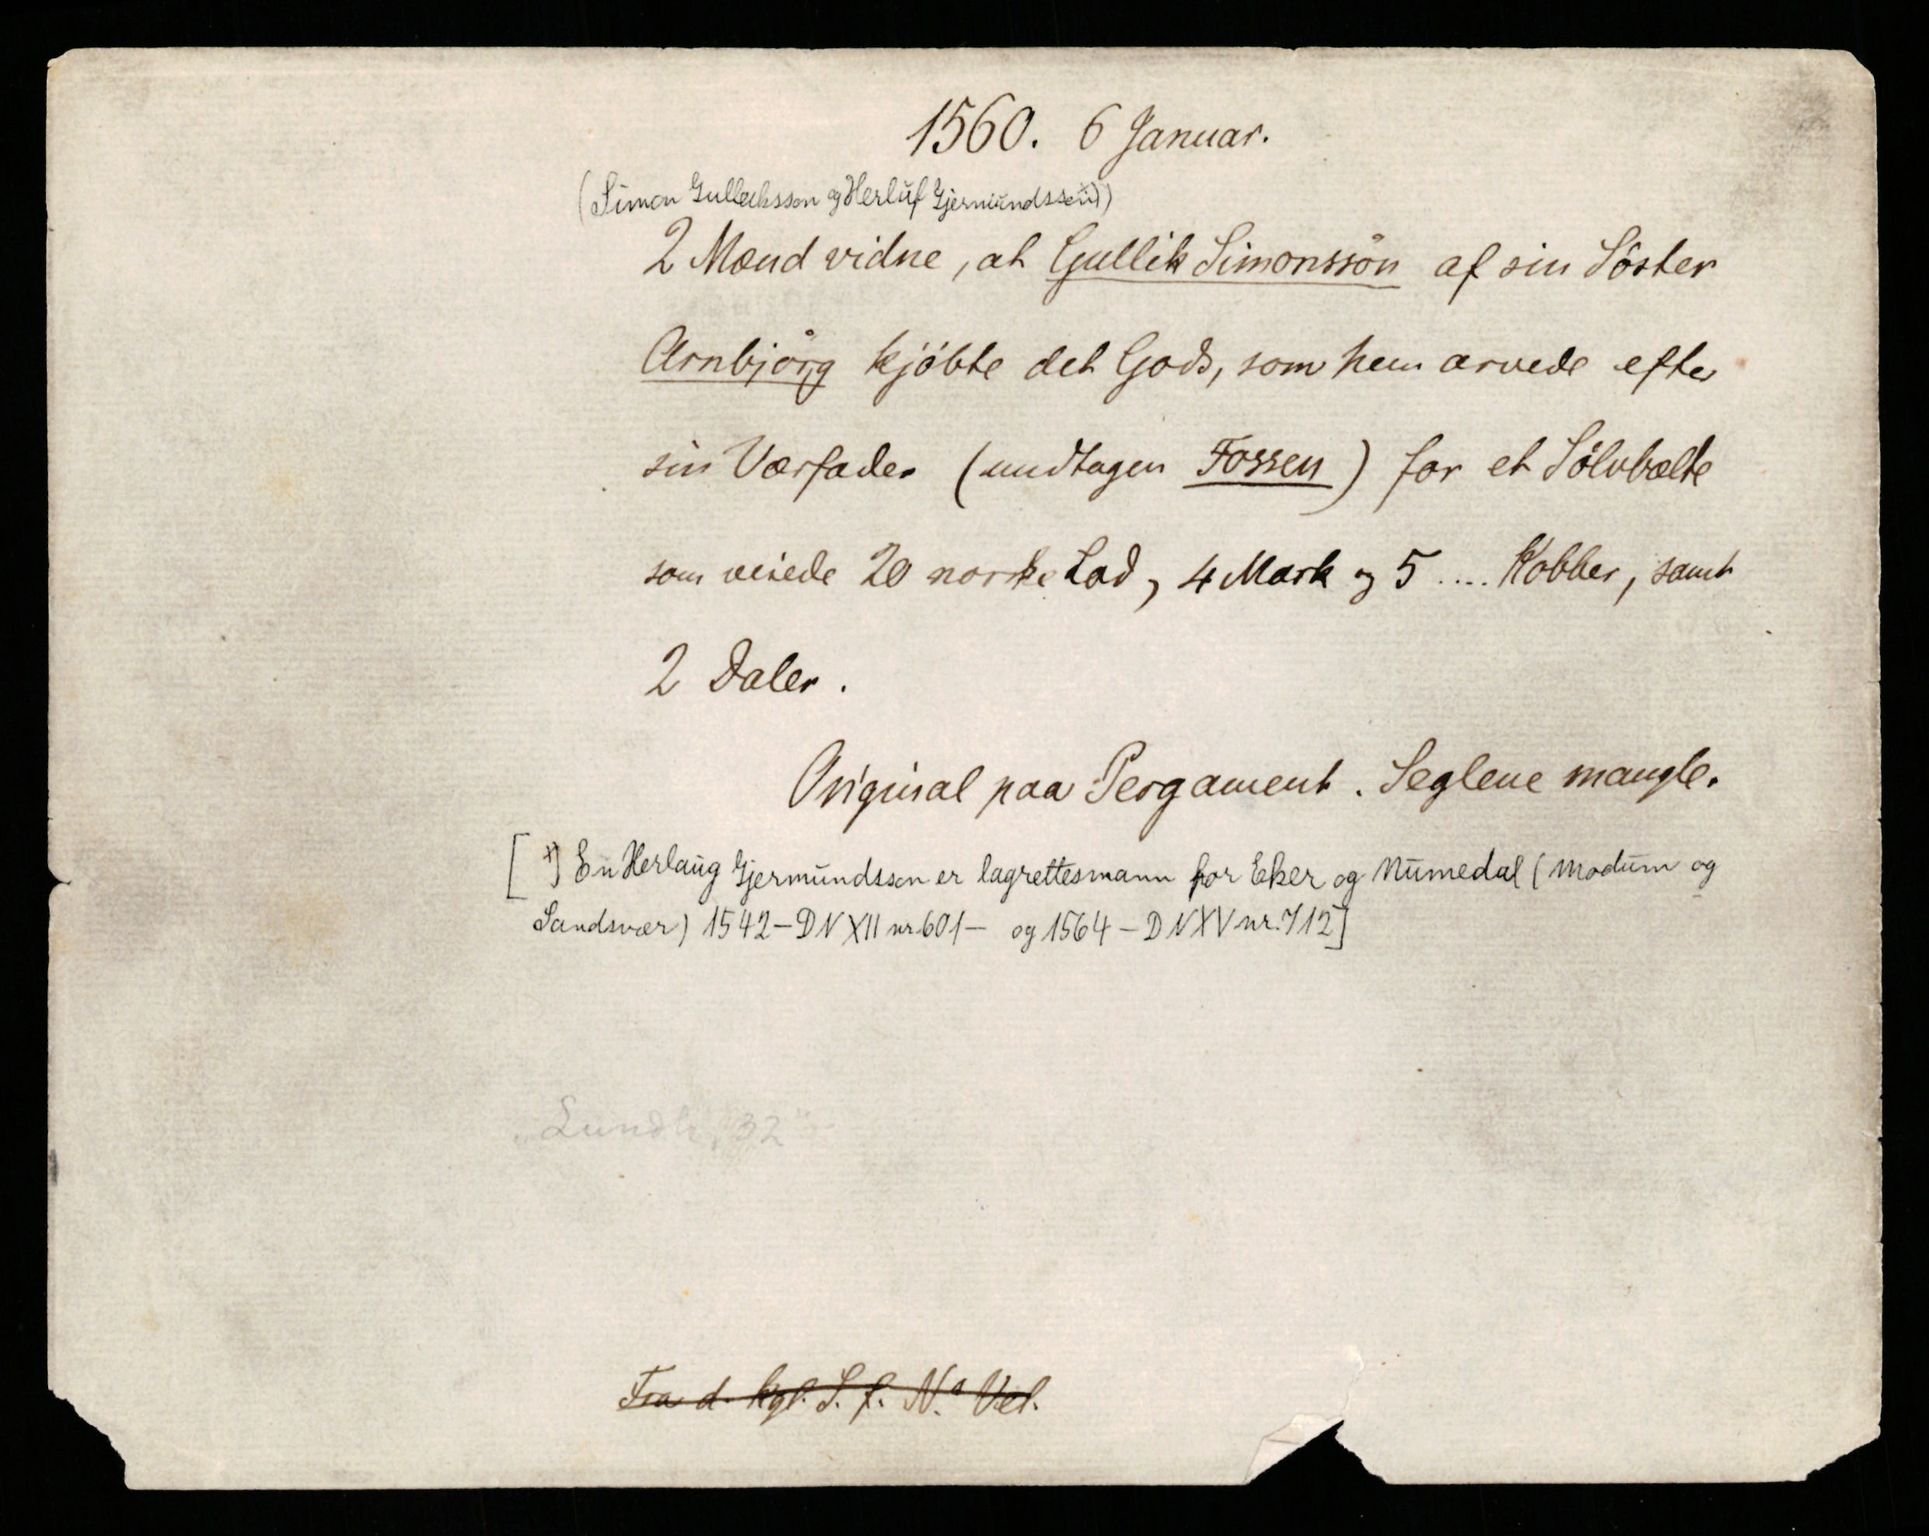 1560. 6 Januar.
(Simon Gulleiksson og Herluf Gjermundsson x))
2 Mænd vidne, at Gullik Simonssön af sin Söster
Arnbjörg kjöbte det Gods, som hun arvede efter
sin Værfader (undtagen Fossen) for et Sölvbælte
som veiede 20 norske Lod, 4 Mark og 5 .... Kobber, samt
2 Daler.
Original paa Pergament. Seglene mangle.
[x) En Herlaug Gjermundsson er lagrettesmann for Eker og Numedal (Modum og
Sandsvær) 1542 - DN XII nr. 601 - og 1564 - DN XV nr. 712]
"Lundh, 32"
Fra d. kgl. S. f. N.s Vel.